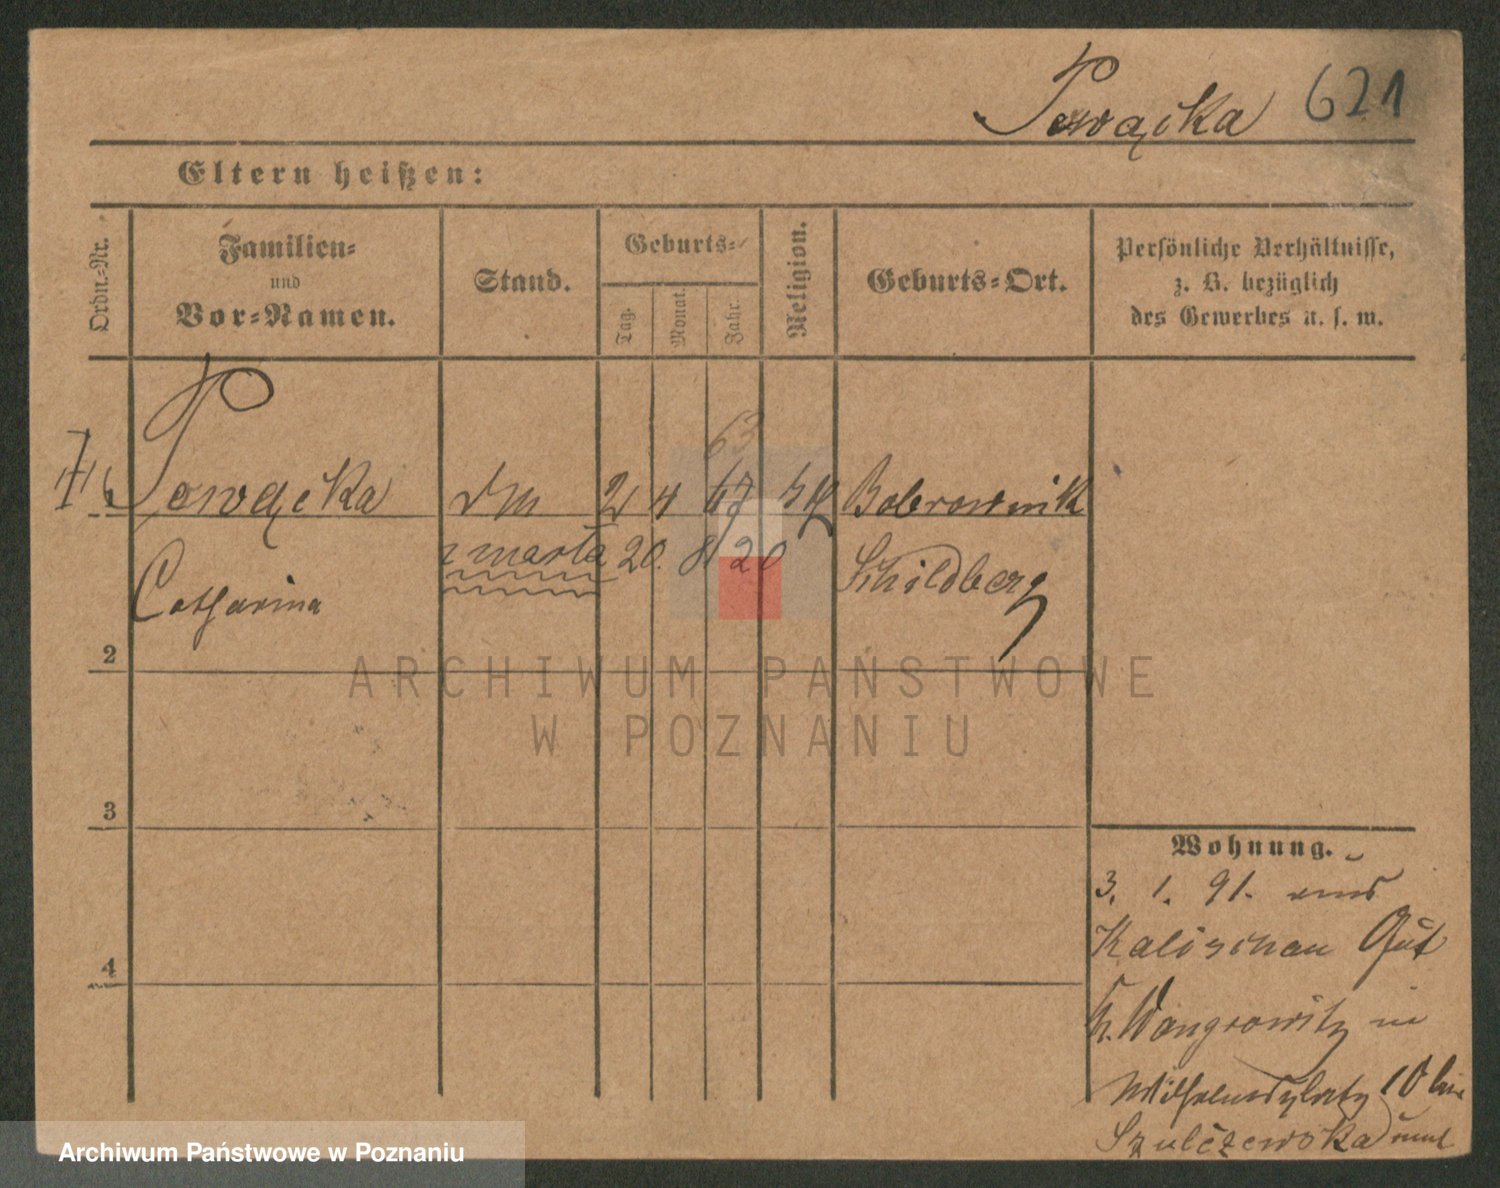 Powącka 621
Eltern heißen:
Ordn.-Nr.
Familien-
und
Vor-Namen.
Stand.
Geburts-
Tag.
Monat.
Jahr.
Religion.
Geburts-Ort.
Persönliche Verhältnisse,
z. B. bezüglich
des Gewerbes u. s. w.
63
Powącka 2 4 67 Bobrownik
zmarła 20. 8 20 Schildberg
Catharina
2
3
4
Wohnung.
3. 1. 91. aus
Kalischan Gut
Kr. Wongrowitz in
Wilhelmsplatz 10 bei
Szulczewska
ARCHIWUM PAŃSTWOWE
W POZNANIU
Archiwum Państwowe w Poznaniu